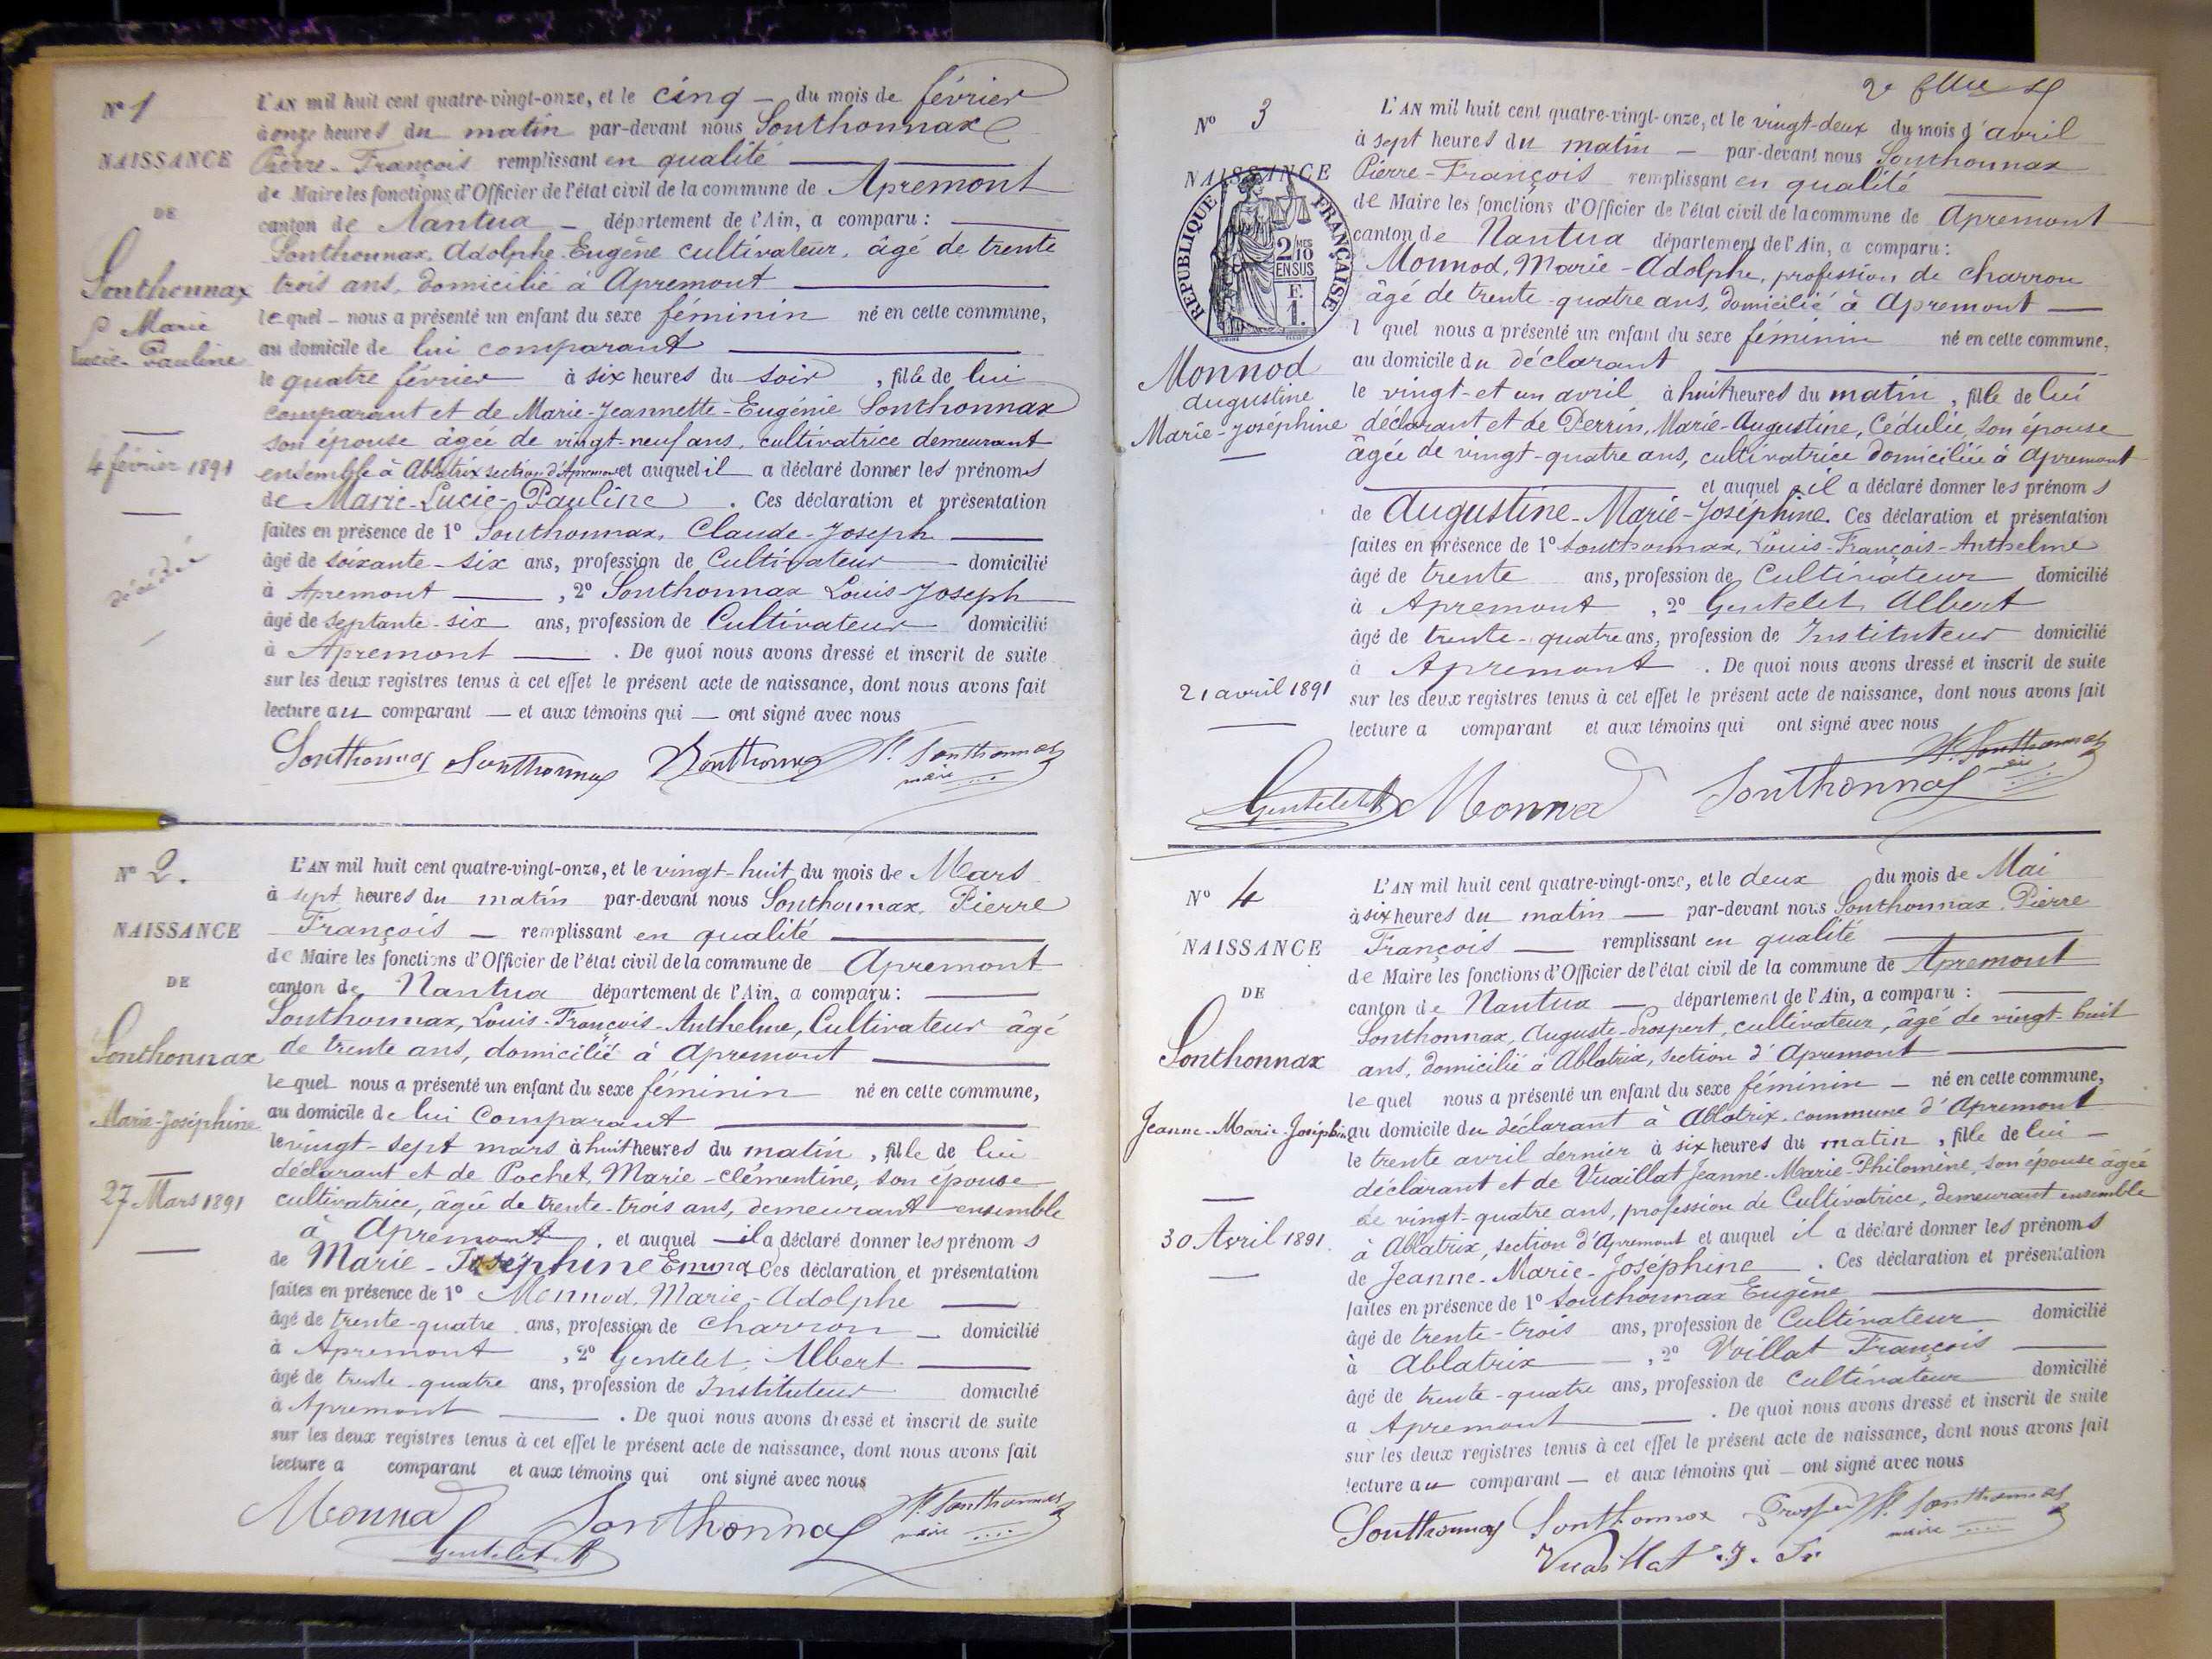 N° 1
NAISSANCE
DE
Sonthonnax
Marie
Lucie-Pauline
4 février 1891
décédée
L'AN mil huit cent quatre-vingt-onze, et le cinq - du mois de février
à onze heures du matin par-devant nous Sonthonnax
Pierre-François remplissant en qualité
de Maire les fonctions d'Officier de l'état civil de la commune de Apremont
canton de Nantua - département de l'Ain, a comparu :
Sonthonnax, Adolphe-Eugène cultivateur, âgé de trente
trois ans, domicilié à Apremont
lequel - nous a présenté un enfant du sexe féminin né en cette commune,
au domicile de lui comparant
le quatre février à six heures du soir, fille de lui
comparant et de Marie-Jeannette-Eugénie Sonthonnax
son épouse âgée de vingt-neuf ans, cultivatrice demeurant
ensemble à Ablatrix section d'Apremont et auquel il a déclaré donner les prénoms
de Marie-Lucie-Pauline. Ces déclaration et présentation
faites en présence de 1° Sonthonnax, Claude-Joseph
âgé de soixante-six ans, profession de Cultivateur domicilié
à Apremont, 2° Sonthonnax Louis-Joseph
âgé de septante-six ans, profession de Cultivateur domicilié
à Apremont. De quoi nous avons dressé et inscrit de suite
sur les deux registres tenus à cet effet le présent acte de naissance, dont nous avons fait
lecture au comparant - et aux témoins qui - ont signé avec nous
Sonthonnax Sonthonnax Sonthonnax Sonthonnax
maire
N° 2.
NAISSANCE
DE
Sonthonnax
Marie-Joséphine
27 Mars 1891
L'AN mil huit cent quatre-vingt-onze, et le vingt-huit du mois de Mars
à sept heures du matin par-devant nous Sonthonnax, Pierre
François - remplissant en qualité
de Maire les fonctions d'Officier de l'état civil de la commune de Apremont
canton de Nantua département de l'Ain, a comparu :
Sonthonnax, Louis-François-Anthelme, Cultivateur âgé
de trente ans, domicilié à Apremont
lequel nous a présenté un enfant du sexe féminin né en cette commune,
au domicile de lui Comparant
le vingt-sept mars à huit heures du matin, fille de lui
déclarant et de Pochet, Marie-Clémentine, son épouse
cultivatrice, âgée de trente-trois ans, demeurant ensemble
à Apremont, et auquel - il a déclaré donner les prénoms
de Marie-Joséphine Emma. Ces déclaration et présentation
faites en présence de 1° Monnod, Marie-Adolphe
âgé de trente-quatre ans, profession de charron - domicilié
à Apremont, 2° Gentelet, Albert
âgé de trente-quatre ans, profession de Instituteur domicilié
à Apremont. De quoi nous avons dressé et inscrit de suite
sur les deux registres tenus à cet effet le présent acte de naissance, dont nous avons fait
lecture a comparant et aux témoins qui ont signé avec nous
Monnod Sonthonnax Sonthonnax
maire
Gentelet A
N° 3
NAISSANCE
REPUBLIQUE FRANÇAISE
2/10 MES
EN SUS
F.
1.
Monnod
Augustine
Marie-Joséphine
21 avril 1891
L'AN mil huit cent quatre-vingt-onze, et le vingt-deux du mois d'avril
à sept heures du matin - par-devant nous Sonthonnax
Pierre-François remplissant en qualité
de Maire les fonctions d'Officier de l'état civil de la commune de Apremont
canton de Nantua département de l'Ain, a comparu :
Monnod, Marie-Adolphe, profession de charron
âgé de trente-quatre ans, domicilié à Apremont
l quel nous a présenté un enfant du sexe féminin né en cette commune,
au domicile du déclarant
le vingt-et un avril à huit heures du matin, fille de lui
déclarant et de Perrin, Marie-Augustine, Cédulie, son épouse
âgée de vingt-quatre ans, cultivatrice domiciliée à Apremont
et auquel il a déclaré donner les prénoms
de Augustine-Marie-Joséphine. Ces déclaration et présentation
faites en présence de 1° Sonthonnax, Louis-François-Anthelme
âgé de trente ans, profession de Cultivateur domicilié
à Apremont, 2° Gentelet, Albert
âgé de trente-quatre ans, profession de Instituteur domicilié
à Apremont. De quoi nous avons dressé et inscrit de suite
sur les deux registres tenus à cet effet le présent acte de naissance, dont nous avons fait
lecture a comparant et aux témoins qui ont signé avec nous
Sonthonnax
Gentelet A Monnod Sonthonnax
N° 4
NAISSANCE
DE
Sonthonnax
Jeanne-Marie-Joséphine
30 Avril 1891
L'AN mil huit cent quatre-vingt-onze, et le deux du mois de Mai
à six heures du matin - par-devant nous Sonthonnax, Pierre
François - remplissant en qualité
de Maire les fonctions d'Officier de l'état civil de la commune de Apremont
canton de Nantua - département de l'Ain, a comparu :
Sonthonnax, Auguste-Prospert, cultivateur, âgé de vingt-huit
ans, domicilié à Ablatrix, section d'Apremont
lequel nous a présenté un enfant du sexe féminin - né en cette commune,
au domicile du déclarant à Ablatrix, commune d'Apremont
le trente avril dernier à six heures du matin, fille de lui -
déclarant et de Vuaillat Jeanne-Marie-Philomène, son épouse âgée
de vingt-quatre ans, profession de Cultivatrice, demeurant ensemble
à Ablatrix, section d'Apremont et auquel il a déclaré donner les prénoms
de Jeanne-Marie-Joséphine. Ces déclaration et présentation
faites en présence de 1° Sonthonnax Eugène
âgé de trente-trois ans, profession de Cultivateur domicilié
à Ablatrix -, 2° Voillat François
âgé de trente-quatre ans, profession de Cultivateur domicilié
à Apremont. De quoi nous avons dressé et inscrit de suite
sur les deux registres tenus à cet effet le présent acte de naissance, dont nous avons fait
lecture au comparant - et aux témoins qui - ont signé avec nous
Sonthonnax Sonthonnax Prosper Sonthonnax
maire
Vuaillat J. Fr